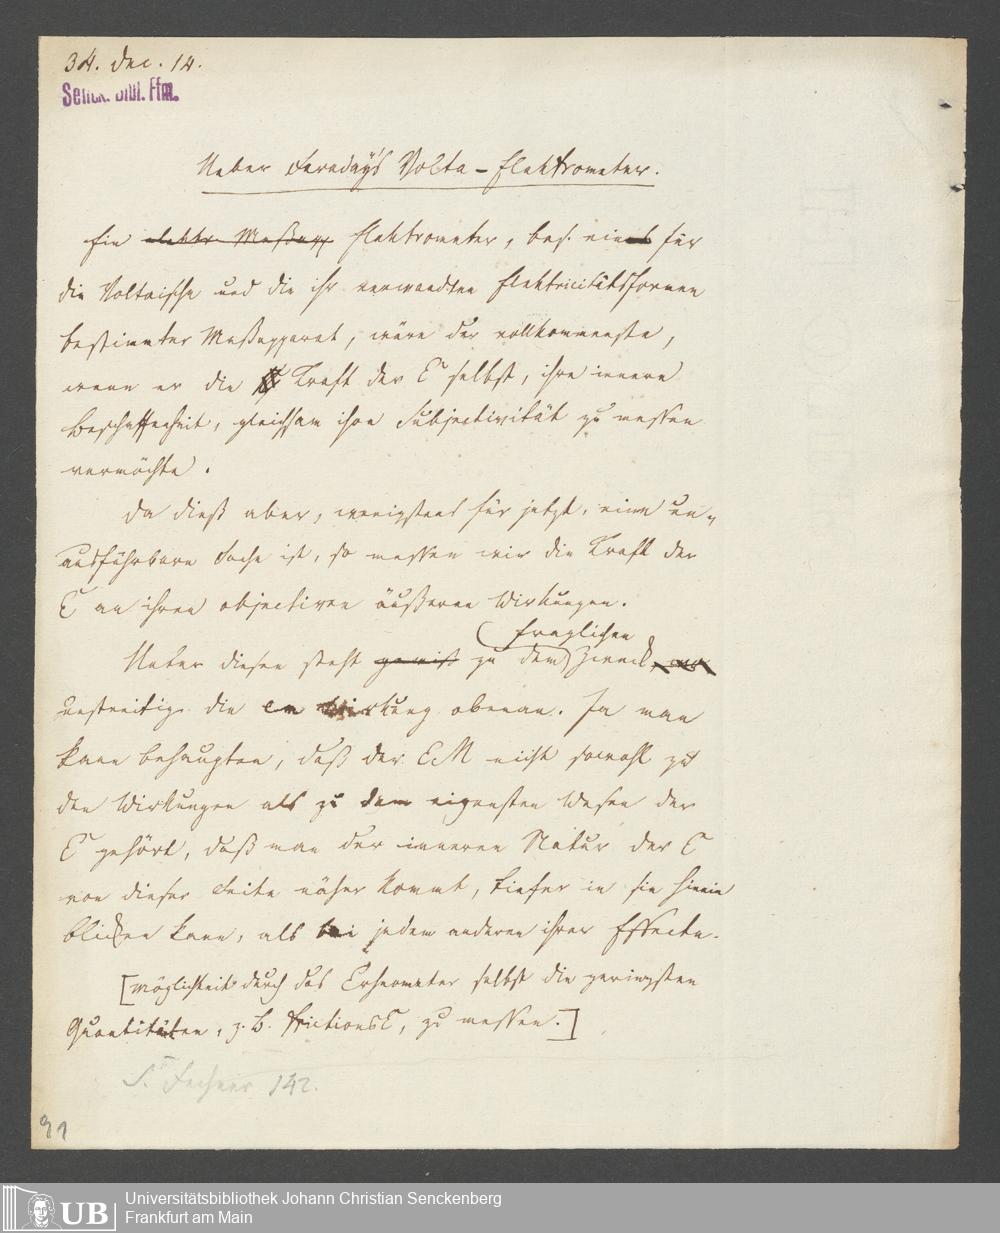 34. Dec. 14.
Senck. Bibl. Ffm.
Ueber Faraday's Volta-Elektrometer.
Ein elektr. Meßapp Elektrometer, bes. ein für
die Voltaische und die ihr verwandten Elektricitätsformen
bestimmter Meßapparat, wäre der vollkommenste,
wenn er die Kraft der E selbst, ihre innere
Beschaffenheit, gleichsam ihre Subjectivität zu messen
vermöchte.
Da dieß aber, wenigstens für jetzt, eine un-
ausführbare Sache ist, so messen wir die Kraft der
E an ihren objectiven äußeren Wirkungen.
fraglichen
Unter diesen steht gewiß zu dem Zweck
unstreitig die em Wirkung obenan. Ja man
kann behaupten, daß der EM nicht sowohl zu
den Wirkungen als zu dem eigensten Wesen der
E gehört, daß man der inneren Natur der E
von dieser Seite näher kommt, tiefer in sie hinein
blicken kann, als bei jedem anderen ihrer Effecte.
[Möglichkeit durch das Erheometer selbst die geringsten
Quantitäten, z. B. FrictionsE, zu messen.]
S. Fechner 142.
91
UB
Universitätsbibliothek Johann Christian Senckenberg
Frankfurt am Main